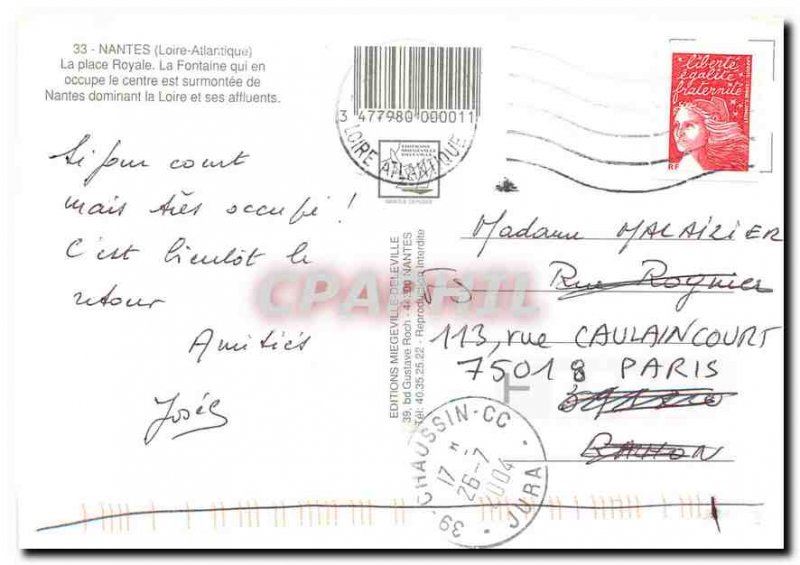 33 - NANTES (Loire-Atlantique)
La place Royale. La Fontaine qui en
occupe le centre est surmontée de
Nantes dominant la Loire et ses affluents.
3 477980 000011
LOIRE ATLANTIQUE
liberté
égalité
fraternité
RF
Séjour court
mais très occupé !
C'est bientôt le
retour
Amitiés
José
EDITIONS MIEGEVILLE-DELEVILLE
39, bd Gustave Roch - NANTES
Tél: 40.35.25.22 - Reproduction Interdite
CPAPHIL
Madame MALAIZIER
Rue Rognier
113, rue CAULAINCOURT
75018 PARIS
39-CHAUSSIN-CC
17 H
26-7
2004
JURA